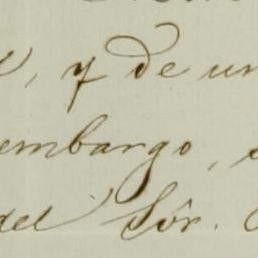 , y de un
embargo, s
del Sôr.